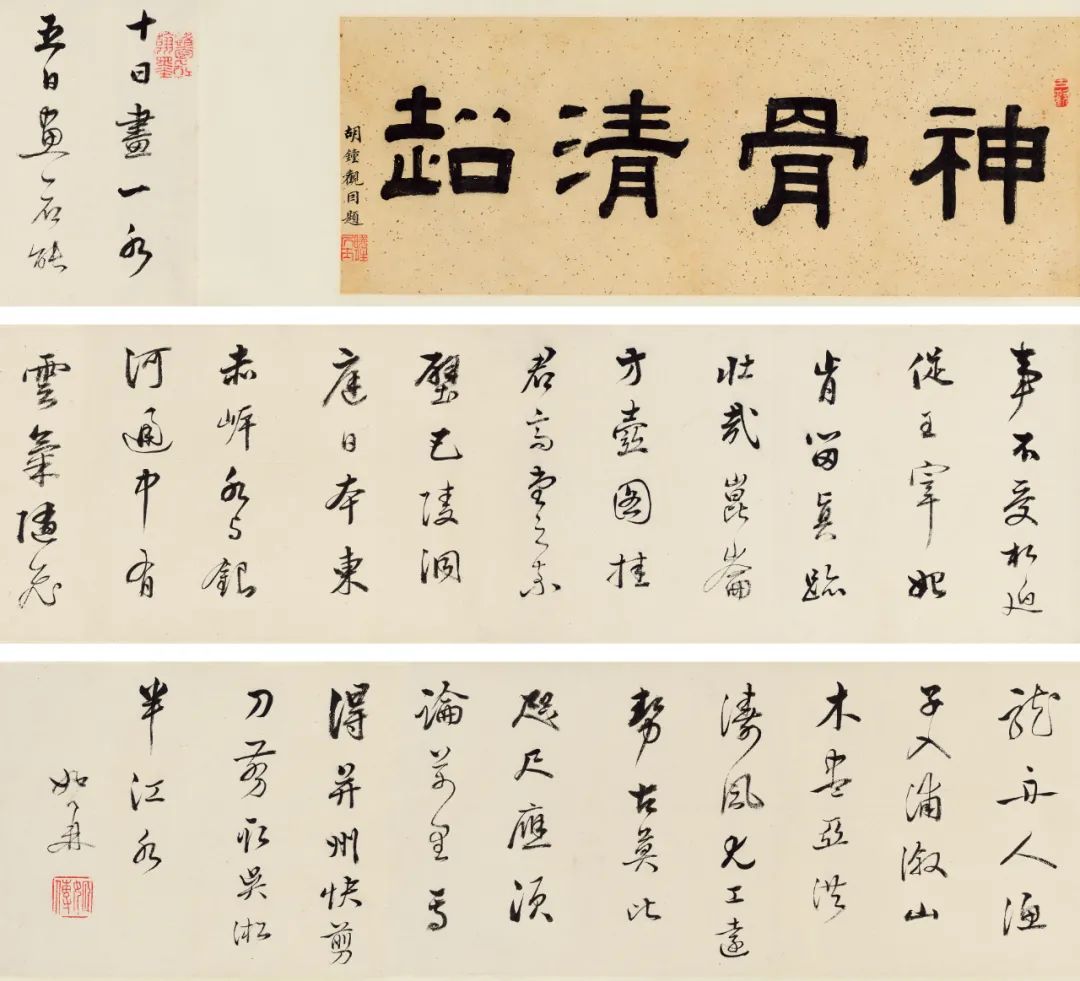 神骨清超
胡鐘觀題
十日畫一水
五日畫一石能
事不受相迫
促王宰始
肯留真跡
壯哉崑崙
方壺图挂
君高堂之素
壁巴陵洞
庭日本東
赤岸水与銀
河通中有
雲氣隨飛
龍舟人漁
子入浦漵山
木盡亞洪
濤風尤工遠
勢古莫比
咫尺應須
論萬里焉
得并州快剪
刀剪取吳淞
半江水